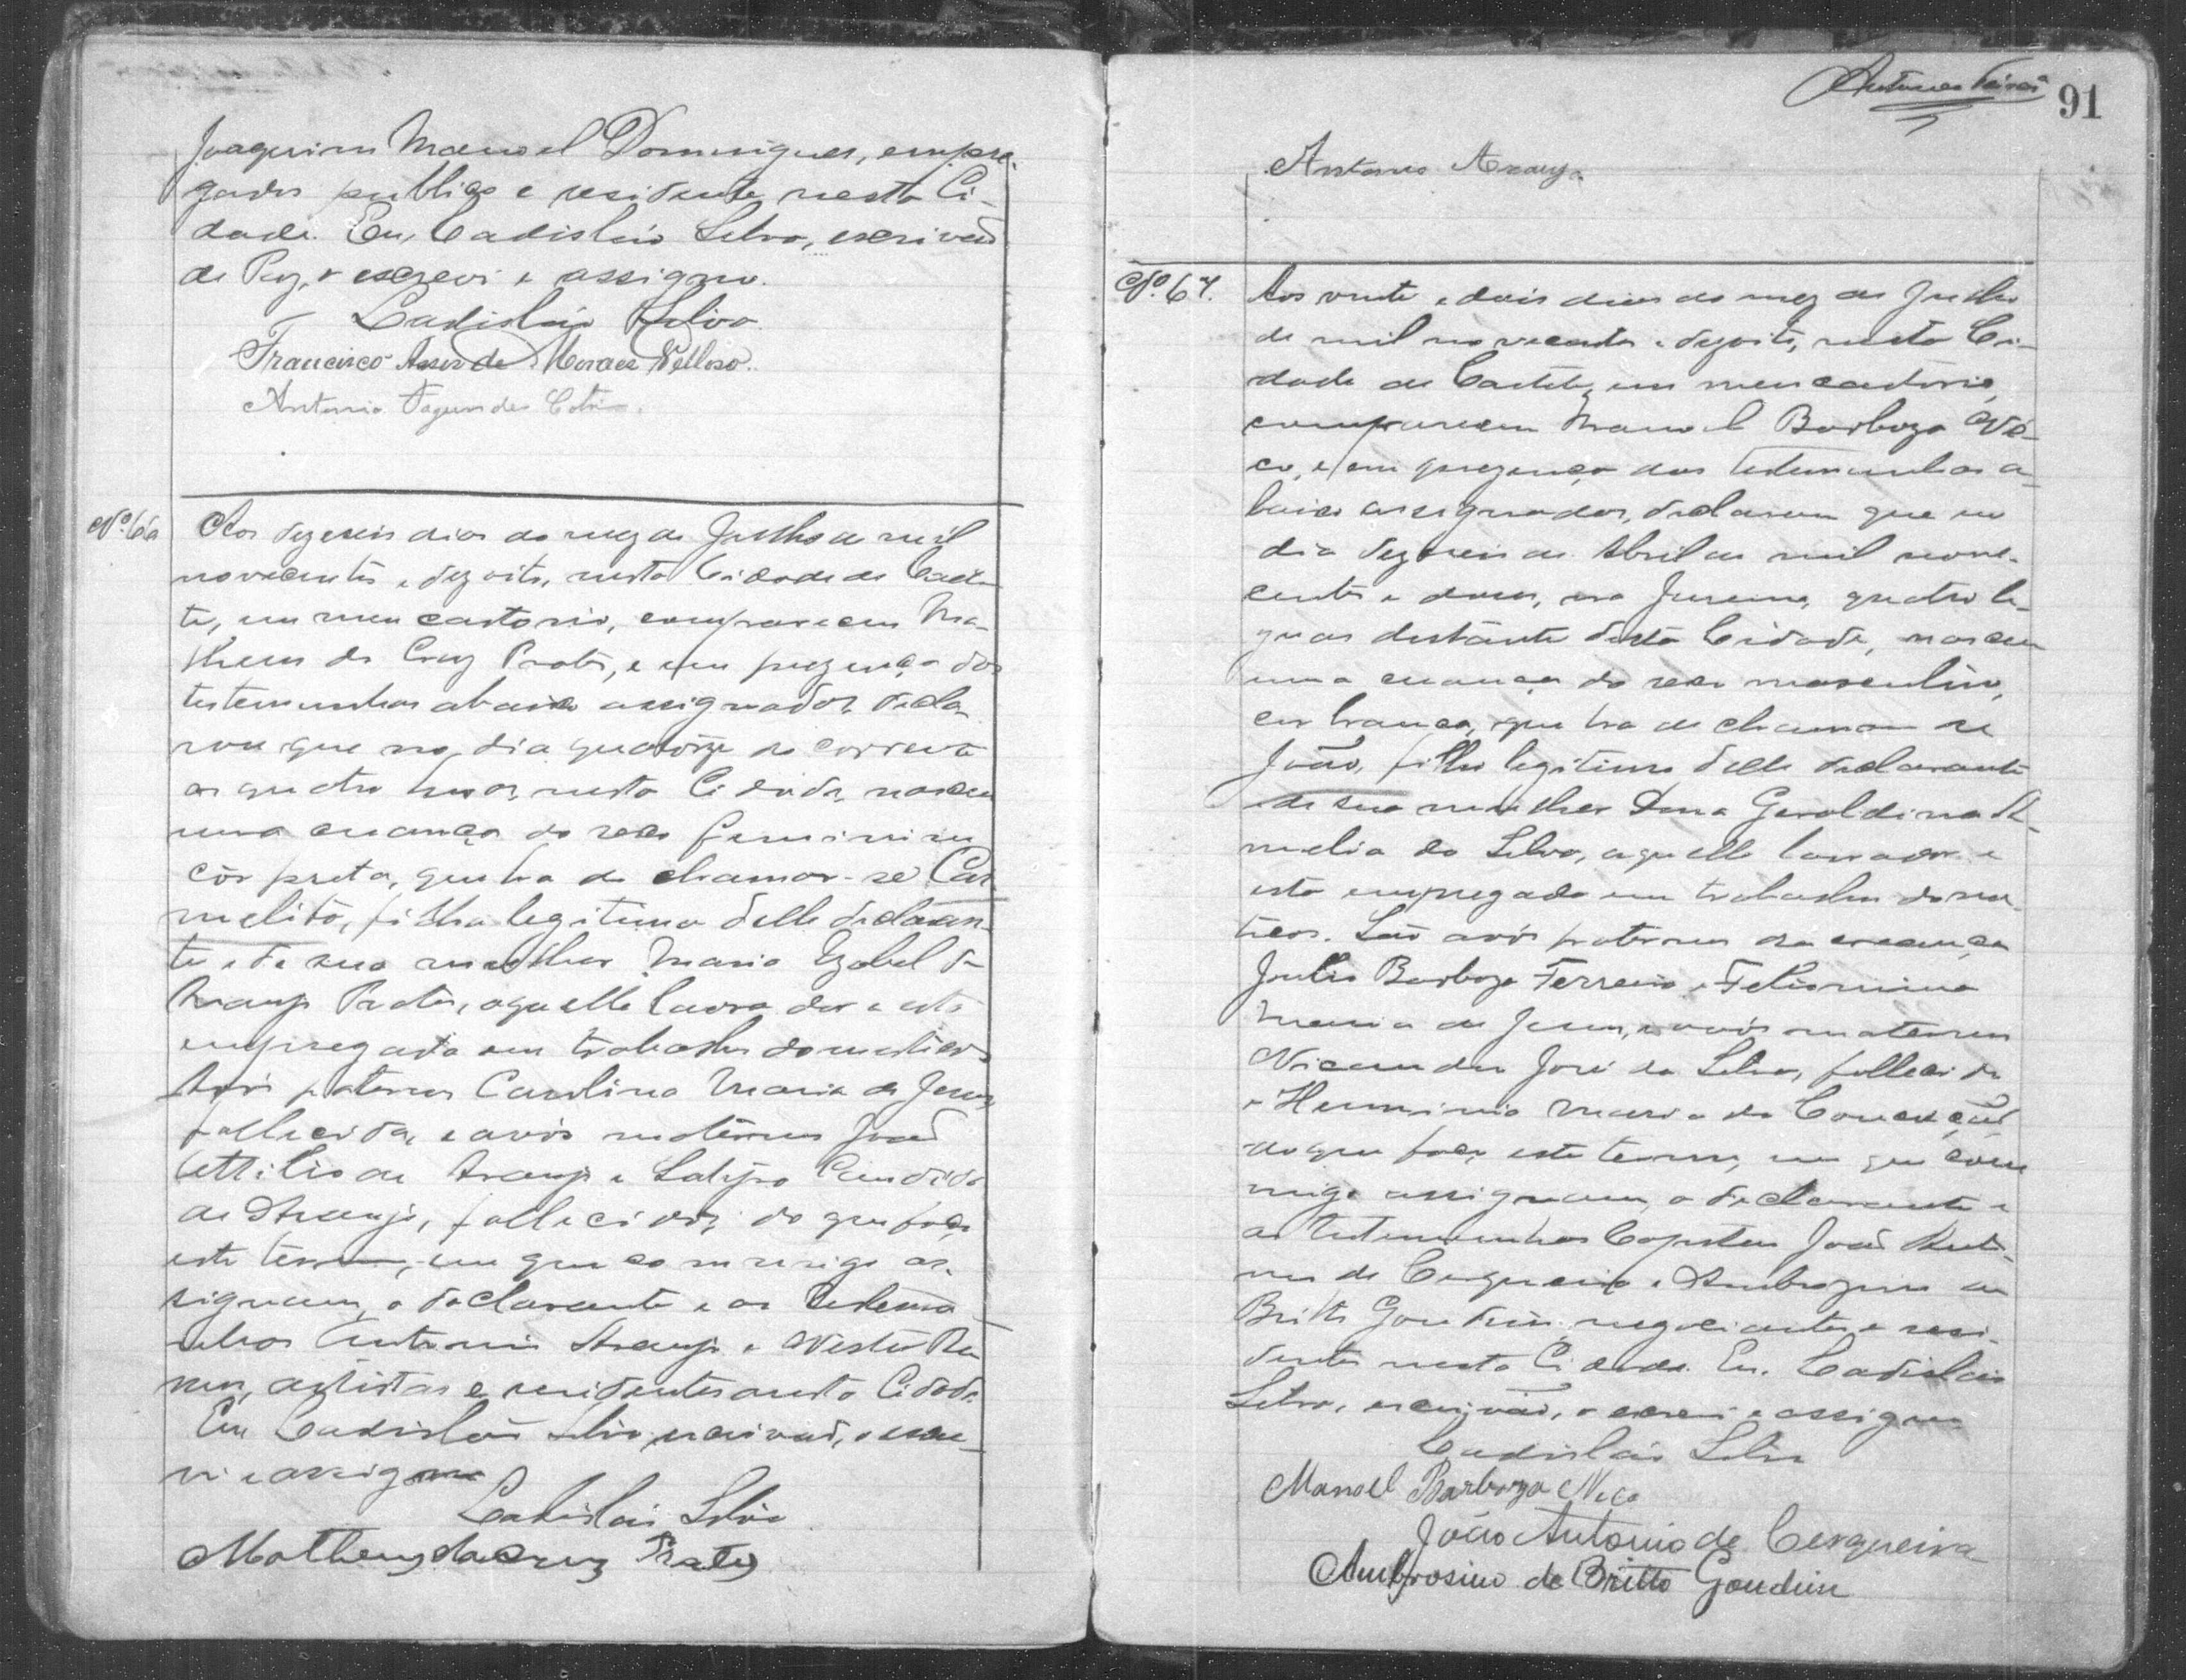 Joaquim Manoel Domingues, empre-
gados publico e residente nesta Ci-
dade. Eu, Ladisláo Silva, escrivão
de Paz, o escrevi e assigno.
Ladisláo Silva
Francisco Assis de Moraes Velloso.
Antonio Fagundes Cotrim.
Nº 66 Aos dezeseis dias do mez de Julho de mil
novecentos e dezoito, nesta Cidade de Caete-
té, em meu cartorio, compareceu Ma-
theus da Cruz Prates, e em prezença das
testemunhas abaixo assignados, decla-
rou que no dia quatorze do corrente
as quatro horas, nesta Cidade, nasceu
uma creança do sexo feminino
côr preta, que ha de chamar-se Car-
melita, filha legitima delle declaran-
te e de sua mulher Maria Izabel de
Araujo Prates, aquelle lavrador e esta
empregada em trabalhos domesticos
Avó paterna Carolina Maria de Jesus,
fallecida, e avós maternos José
de Araujo e Candida
de Araujo, fallecidos; do que faço
este termo, em que commigo as-
signam, o declarante e as testemu-
nhas Antonio Araujo e
artistas e residentes nesta Cidade.
Eu Ladisláo Silva, escrivão, o escre-
vi e assigno
Ladisláo Silva
Matheus da Cruz Prates
91
Antonio Araujo
Nº 67. Aos vinte e dois dias do mez de Julho
de mil novecentos e dezoito, nesta Ci-
dade de Caeteté, em meu cartorio,
compareceu Manoel Barboza Né-
co, e em prezença das testemunhas a-
baixo assignados, declarou que no
dia dezeseis de Abril de mil nove-
centos e doze, na Jurema, quatro le-
guas distante desta Cidade, nasceu
uma creança do sexo masculino,
cor branca, que ha de chamar-se
João, filho legitimo delle declarante
e de sua mulher Dona Geraldina A-
melia da Silva, aquelle lavrador e
esta empregada em trabalhos domes-
ticos. São avós paternos da creança
Julio Barboza Ferreira e Felismina
Maria de Jesus, e avós maternos
Nicandro José da Silva, fallecido
e Herminia Maria da Conceição,
do que faço este termo, em que com-
migo assignam, o declarante e
as testemunhas Capitão João Anto-
nio de Cerqueira e Ambrozino de
Britto Gondim, negociantes e resi-
dentes nesta Cidade. Eu, Ladisláo
Silva, escrivão, o escrevi e assigno
Ladisláo Silva
Manoel Barboza Neco
João Antonio de Cerqueira
Ambrosino de Britto Gondim